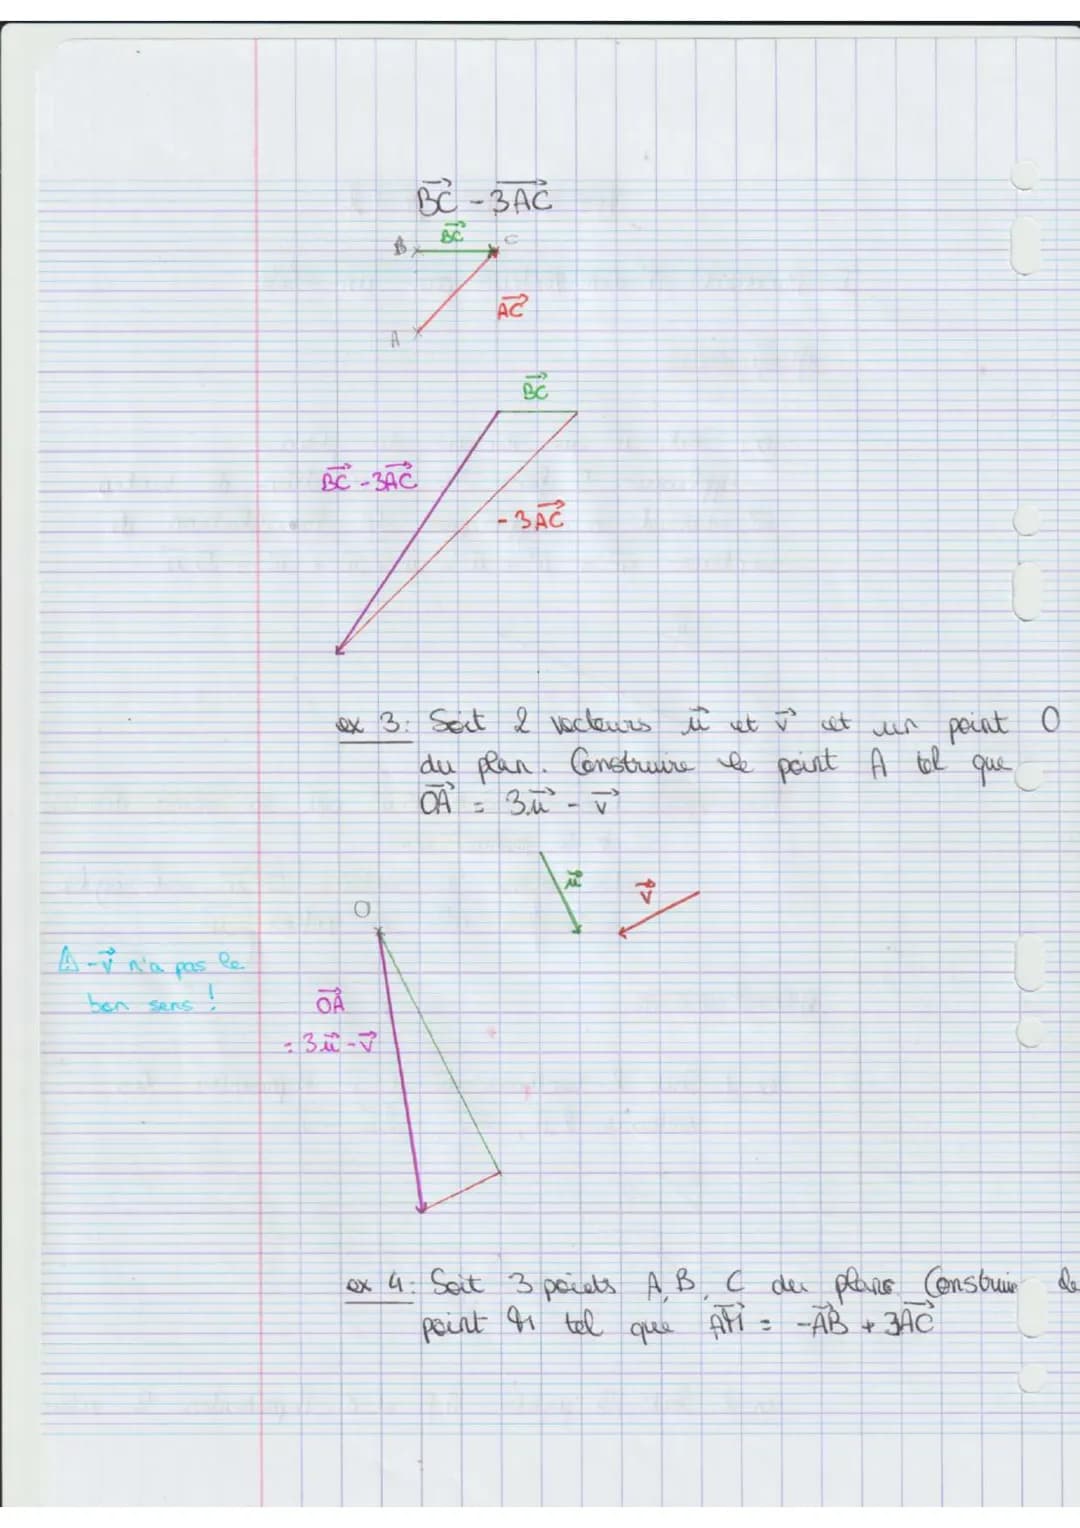 BC⃗ - 3AC⃗
BC⃗
B
C
AC⃗
A
BC⃗
BC⃗ - 3AC⃗
- 3AC⃗
ex 3: Soit 2 vecteurs u⃗ et v⃗ et un point O
du plan. Construire le point A tel que
OA⃗ = 3u⃗ - v⃗
u⃗
v⃗
O
⚠ -v⃗ n'a pas le
bon sens !
OA⃗
= 3u⃗ - v⃗
ex 4: Soit 3 points A, B, C du plan. Construire le
point M tel que AM⃗ = -AB⃗ + 3AC⃗